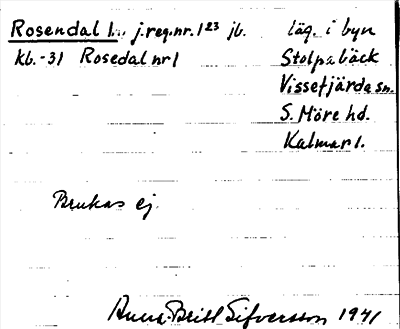 Rosendal 1.. j.reg.nr. 1²³ jb. läg. i byn
kb.-31 Rosedal nr 1 Stolpabäck
Vissefjärda sn.
S. Möre hd.
Kalmar l.
Brukas ej.
Anna-Britt Sifversson 1941